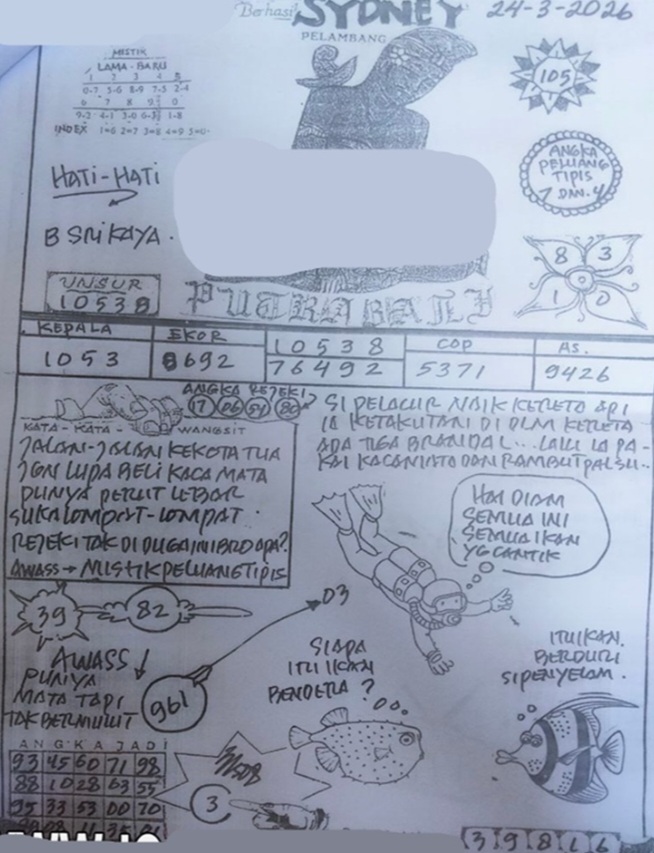 Berhasil SYDNEY 24-3-2026
PELAMBANG
MISTIK
LAMA - BARU
1 2 3 4 5
0-7 5-6 8-9 7-5 2-4
6 7 8 9 0
INDEX 1=6 2=7 3=8 4=9 5=0
105
HATI-HATI
ANGKA
PELUANG
TIPIS
1 DAN 4
B SRIKAYA.
8 3
1 0
UNSUR
10538
PUTRA BALI
KEPALA EKOR 10538 COP AS.
1053 8692 76492 5371 9426
ANGKA REJEKI
17 06 54 80
KATA - KATA - WANGSIT
JALAN-JALAN KEKOTA TUA
JGN LUPA BELI KACA MATA
PUNYA PERUT LEBAR
SUKA LOMPAT-LOMPAT.
REJEKI TAK DI DUGA INI BRO APA?
AWASS → MISTIK PELUANG TIPIS
SI PELACUR NAIK KERETO API
IA KETAKUTAN DI DLM KERETA
ADA TIGA BRANDAL... LALU IA PA-
KAI KACAMATA DAN RAMBUT PALSU..
HAI DIAM
SEMUA INI
SEMUA IKAN
YG CANTIK
39 82
03
AWASS
PUNYA
MATA TAPI
TAK BERMULUT
961
SIAPA
ITU IKAN
BENDERA ?
ITU IKAN.
BERDURI
SI PENYELAM.
ANGKA JADI
93 45 60 71 98
88 10 28 63 55
95 33 53 00 70
3
3 9 8 1 6